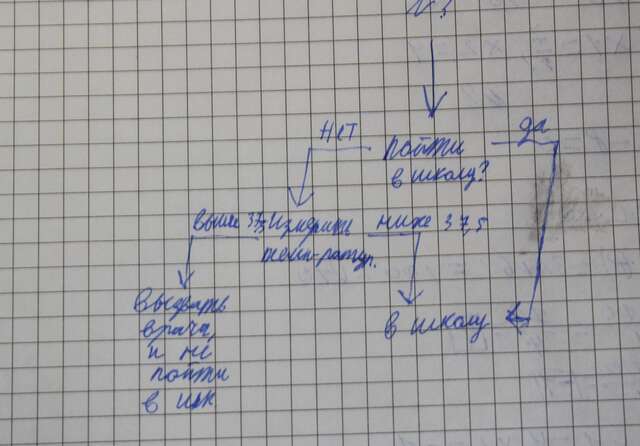 нет
да
пойти
в школу?
выше 37,5
Измерить
темп-ратур.
ниже 37,5
Вызвать
врача,
и не
пойти
в шк
в школу